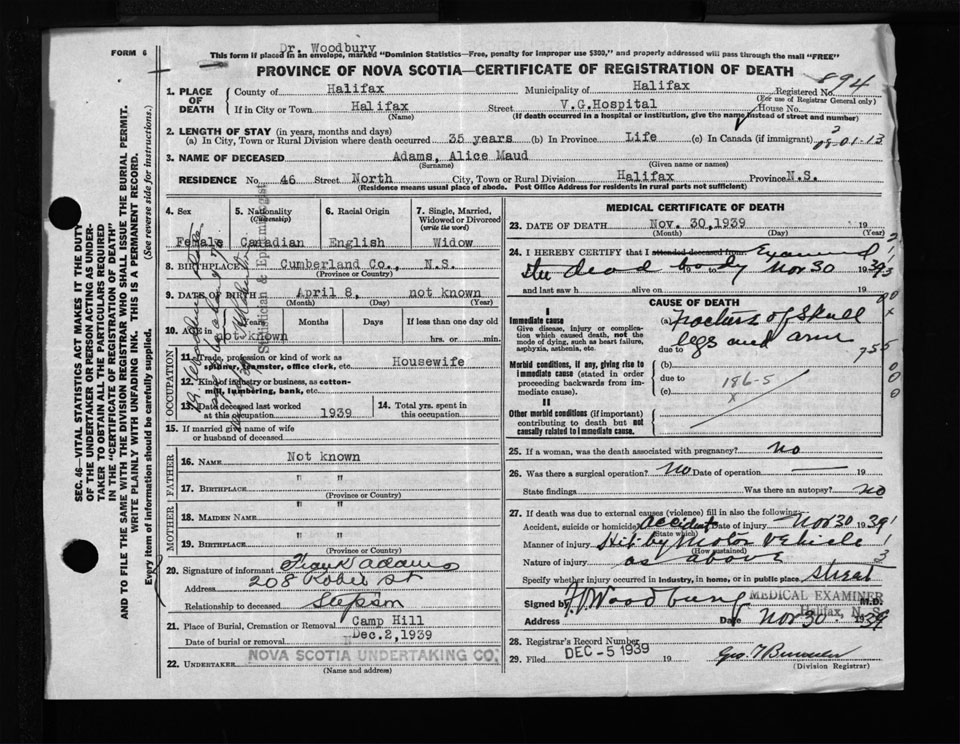 Dr. Woodbury
FORM 6
This form if placed in an envelope, marked "Dominion Statistics—Free, penalty for improper use $300," and properly addressed will pass through the mail "FREE"
PROVINCE OF NOVA SCOTIA—CERTIFICATE OF REGISTRATION OF DEATH
894
1. PLACE OF DEATH
County of Halifax Municipality of Halifax Registered No.
(For use of Registrar General only)
If in City or Town Halifax Street V.G.Hospital House No.
(Name) (If death occurred in a hospital or institution, give the name instead of street and number)
2. LENGTH OF STAY (in years, months and days)
(a) In City, Town or Rural Division where death occurred 35 years (b) In Province Life (c) In Canada (if immigrant)
3. NAME OF DECEASED Adams, Alice Maud
(Surname) (Given name or names)
RESIDENCE No. 46 Street North City, Town or Rural Division of Halifax Province N.S.
(Residence means usual place of abode. Post Office Address for residents in rural parts not sufficient)
4. Sex
Female
5. Nationality (Citizenship)
Canadian
6. Racial Origin
English
7. Single, Married, Widowed or Divorced (write the word)
Widow
8. BIRTHPLACE Cumberland Co., N.S.
(Province or Country)
9. DATE OF BIRTH April 8, not known
(Month) (Day) (Year)
10. AGE in Years Months Days If less than one day old
not known hrs. or min.
OCCUPATION
11. Trade, profession or kind of work as spinner, teamster, office clerk, etc. Housewife
12. Kind of industry or business, as cotton-mill, lumbering, bank, etc.
13. Date deceased last worked at this occupation 1939
14. Total yrs. spent in this occupation
15. If married give name of wife or husband of deceased
FATHER
16. NAME Not known
17. BIRTHPLACE " "
(Province or Country)
MOTHER
18. MAIDEN NAME " "
19. BIRTHPLACE " "
(Province or Country)
20. Signature of informant Frank Adams
Address 208 Robie St
Relationship to deceased Stepson
21. Place of Burial, Cremation or Removal Camp Hill
Date of burial or removal Dec.2,1939
22. UNDERTAKER NOVA SCOTIA UNDERTAKING CO.
(Name and address)
MEDICAL CERTIFICATE OF DEATH
23. DATE OF DEATH Nov. 30,1939 19
(Month) (Day) (Year)
24. I HEREBY CERTIFY that I attended deceased from Examined
the dead body to Nov 30 1939
and last saw h alive on 19
CAUSE OF DEATH
I
Immediate cause
Give disease, injury or complication which caused death, not the mode of dying, such as heart failure, asphyxia, asthenia, etc.
(a) Fracture of Skull
legs and arm
due to
Morbid conditions, if any, giving rise to immediate cause (stated in order proceeding backwards from immediate cause).
(b)
due to
(c)
186-5
x
II
Other morbid conditions (if important) contributing to death but not causally related to immediate cause.
25. If a woman, was the death associated with pregnancy? No
26. Was there a surgical operation? No Date of operation —
State findings Was there an autopsy? No
27. If death was due to external causes (violence) fill in also the following:
Accident, suicide or homicide? Accident Date of injury Nov 30 1939
(State which)
Manner of injury Hit by Motor Vehicle
(How sustained)
Nature of injury as above
Specify whether injury occurred in industry, in home, or in public place. street
Signed by F.V. Woodbury M.D.
MEDICAL EXAMINER
Halifax, N. S.
Address Date Nov 30 1939
28. Registrar's Record Number
29. Filed DEC - 5 1939 19
(Division Registrar)
SEC. 46—VITAL STATISTICS ACT MAKES IT THE DUTY
OF THE UNDERTAKER OR PERSON ACTING AS UNDER-
TAKER TO OBTAIN ALL THE PARTICULARS REQUIRED
IN THE "CERTIFICATE OF REGISTRATION OF DEATH"
AND TO FILE THE SAME WITH THE DIVISION REGISTRAR WHO SHALL ISSUE THE BURIAL PERMIT.
WRITE PLAINLY WITH UNFADING INK. THIS IS A PERMANENT RECORD.
Every item of information should be carefully supplied. (See reverse side for instructions.)